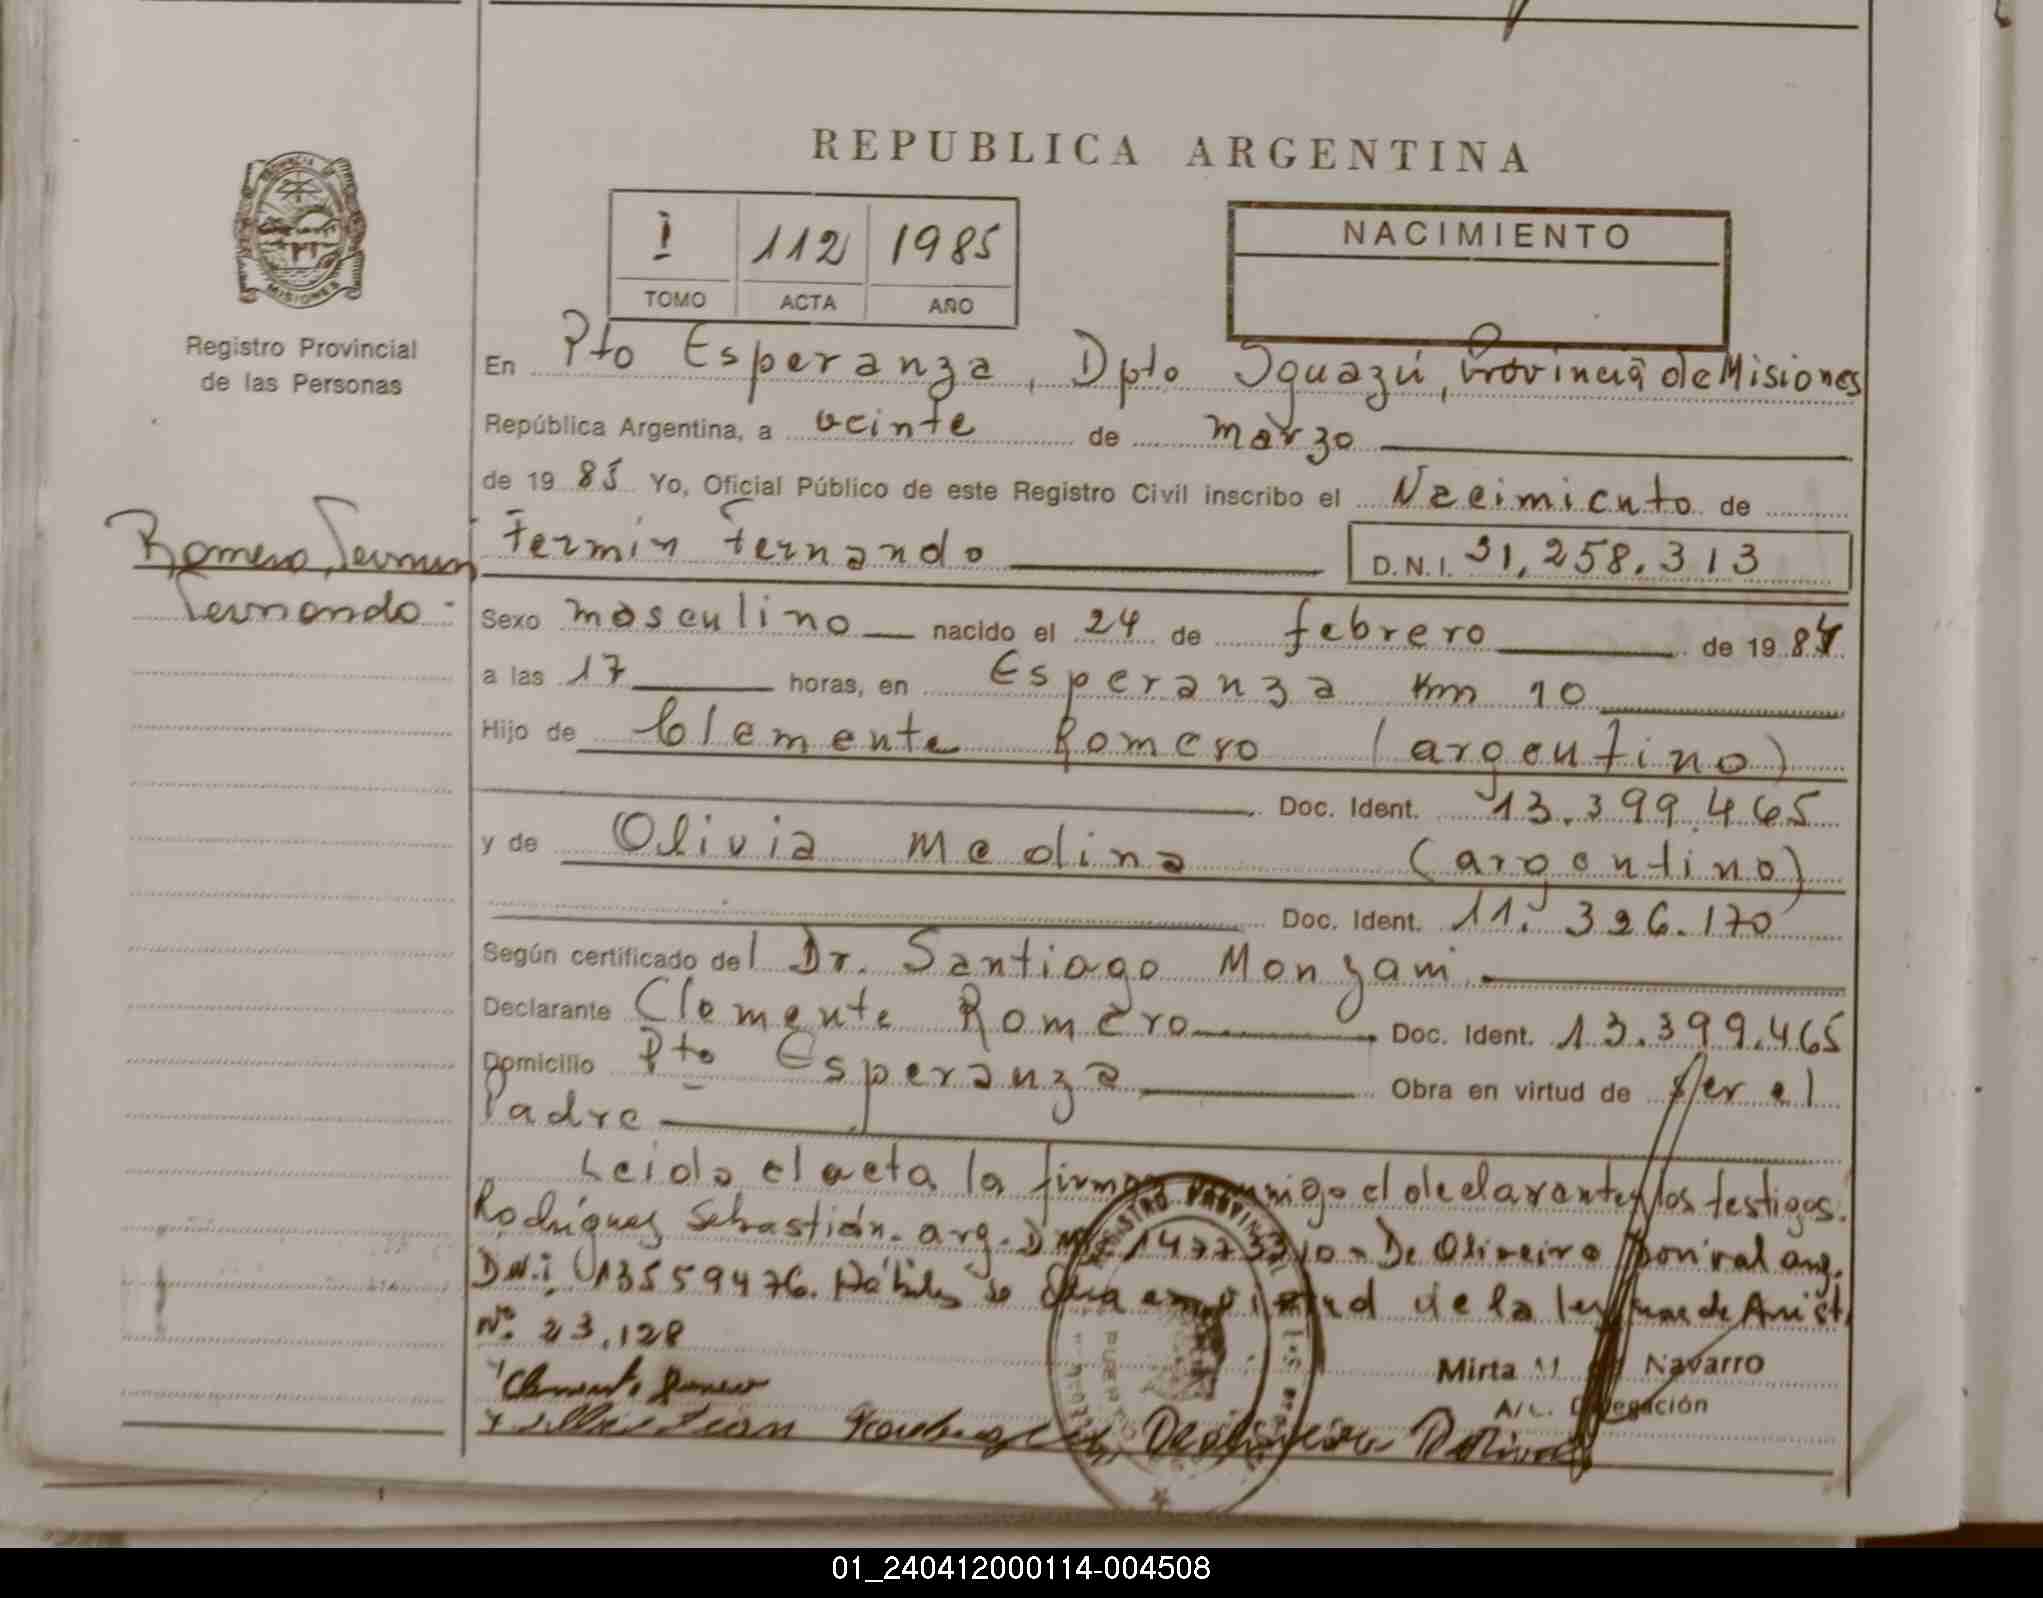 REPUBLICA ARGENTINA
PROVINCIA
MISIONES
Registro Provincial
de las Personas
I 112 1985
TOMO ACTA AÑO
NACIMIENTO
En Pto Esperanza, Dpto Iguazú, Provincia de Misiones
República Argentina, a veinte de marzo
de 1985 Yo, Oficial Público de este Registro Civil inscribo el Nacimiento de
Romero, Fermin
Fernando
Fermin Fernando D.N.I. 31.258.313
Sexo masculino nacido el 24 de febrero de 1984
a las 17 horas, en Esperanza Km 10
Hijo de Clemente Romero (argentino)
Doc. Ident. 13.399.465
y de Olivia Medina (argentino)
Doc. Ident. 11.326.170
Según certificado del Dr. Santiago
Declarante Clemente Romero Doc. Ident. 13.399.465
Domicilio Pto Esperanza Obra en virtud de ser el
Padre
Leida el acta la firman conmigo el declarante y los testigos.
Rodríguez Sebastián. arg. De Oliveira arg.
D.N.i. 13559476. Hábiles se de la ley
Nº 23.128
Clemente Romero
Mirta M. de Navarro
A/C. Delegación
REGISTRO PROVINCIAL
01_240412000114-004508